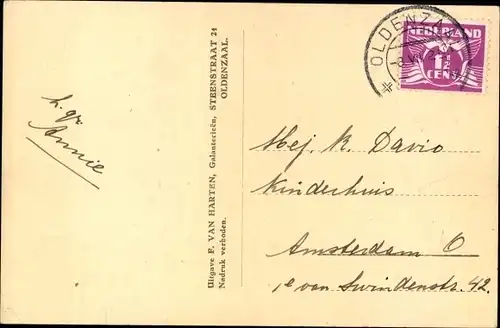 h. gr.
Annie
Uitgave F. VAN HARTEN, Galanterieën, STEENSTRAAT 24
OLDENZAAL.
Nadruk verboden.
OLDENZAAL
NEDERLAND
1½
CENT
Mej. K. Davio
Kinderhuis
Amsterdam O
1e van Swindenstr. 42.